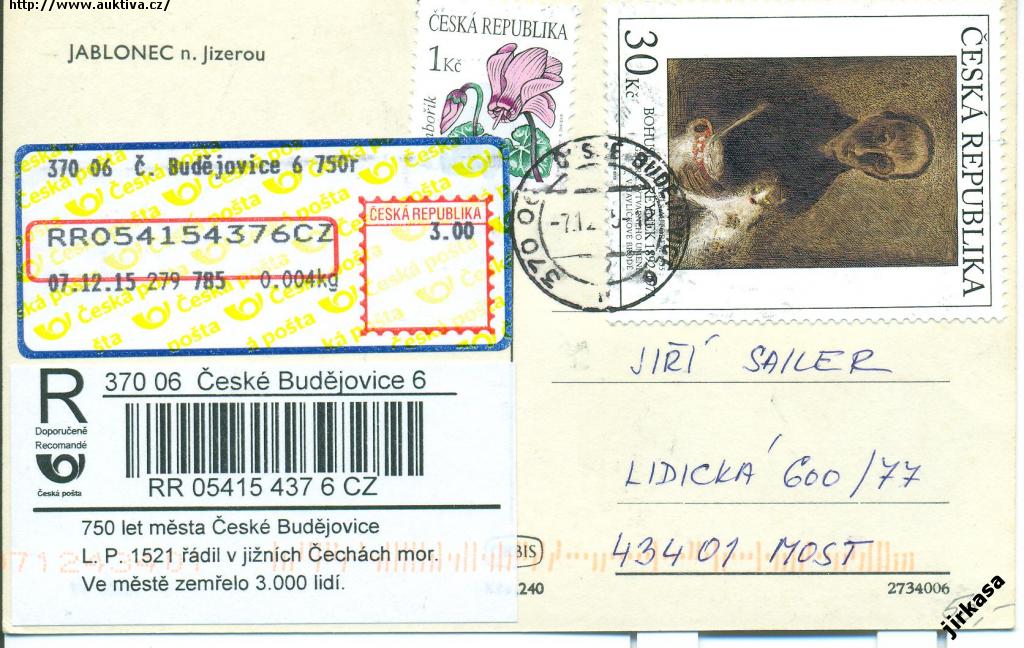 http://www.auktiva.cz/
JABLONEC n. Jizerou
ČESKÁ REPUBLIKA
1 Kč
ČESKÁ REPUBLIKA
30 Kč
370 06 Č. Budějovice 6 750r
RR054154376CZ
07.12.15 279 785 0.004kg
ČESKÁ REPUBLIKA
3.00
Česká pošta
R
Doporučeně
Recomandé
Česká pošta
370 06 České Budějovice 6
RR 05415 437 6 CZ
750 let města České Budějovice
L. P. 1521 řádil v jižních Čechách mor.
Ve městě zemřelo 3.000 lidí.
JIŘÍ SAILER
LIDICKÁ 600/77
43401 MOST
240
2734006
jirkasa